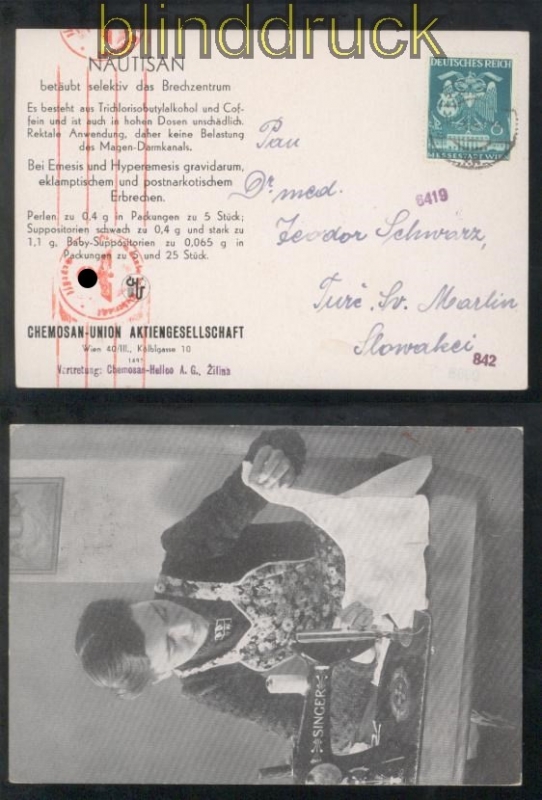 blinddruck
NAUTISAN
betäubt selektiv das Brechzentrum
Es besteht aus Trichlorisobutylalkohol und Cof-
fein und ist auch in hohen Dosen unschädlich.
Rektale Anwendung, daher keine Belastung
des Magen-Darmkanals.
Bei Emesis und Hyperemesis gravidarum,
eklamptischem und postnarkotischem
Erbrechen.
Perlen zu 0,4 g in Packungen zu 5 Stück;
Suppositorien schwach zu 0,4 g und stark zu
1,1 g, Baby-Suppositorien zu 0,065 g in
Packungen zu 5 und 25 Stück.
CHEMOSAN-UNION AKTIENGESELLSCHAFT
Wien 40/III., Kölblgasse 10
Vertretung: Chemosan-Hellco A. G., Žilina
DEUTSCHES REICH
6
Pan
Dr med.
6419
Teodor Schwarz,
Turč. Sv. Martin
Slowakei
842
SINGER